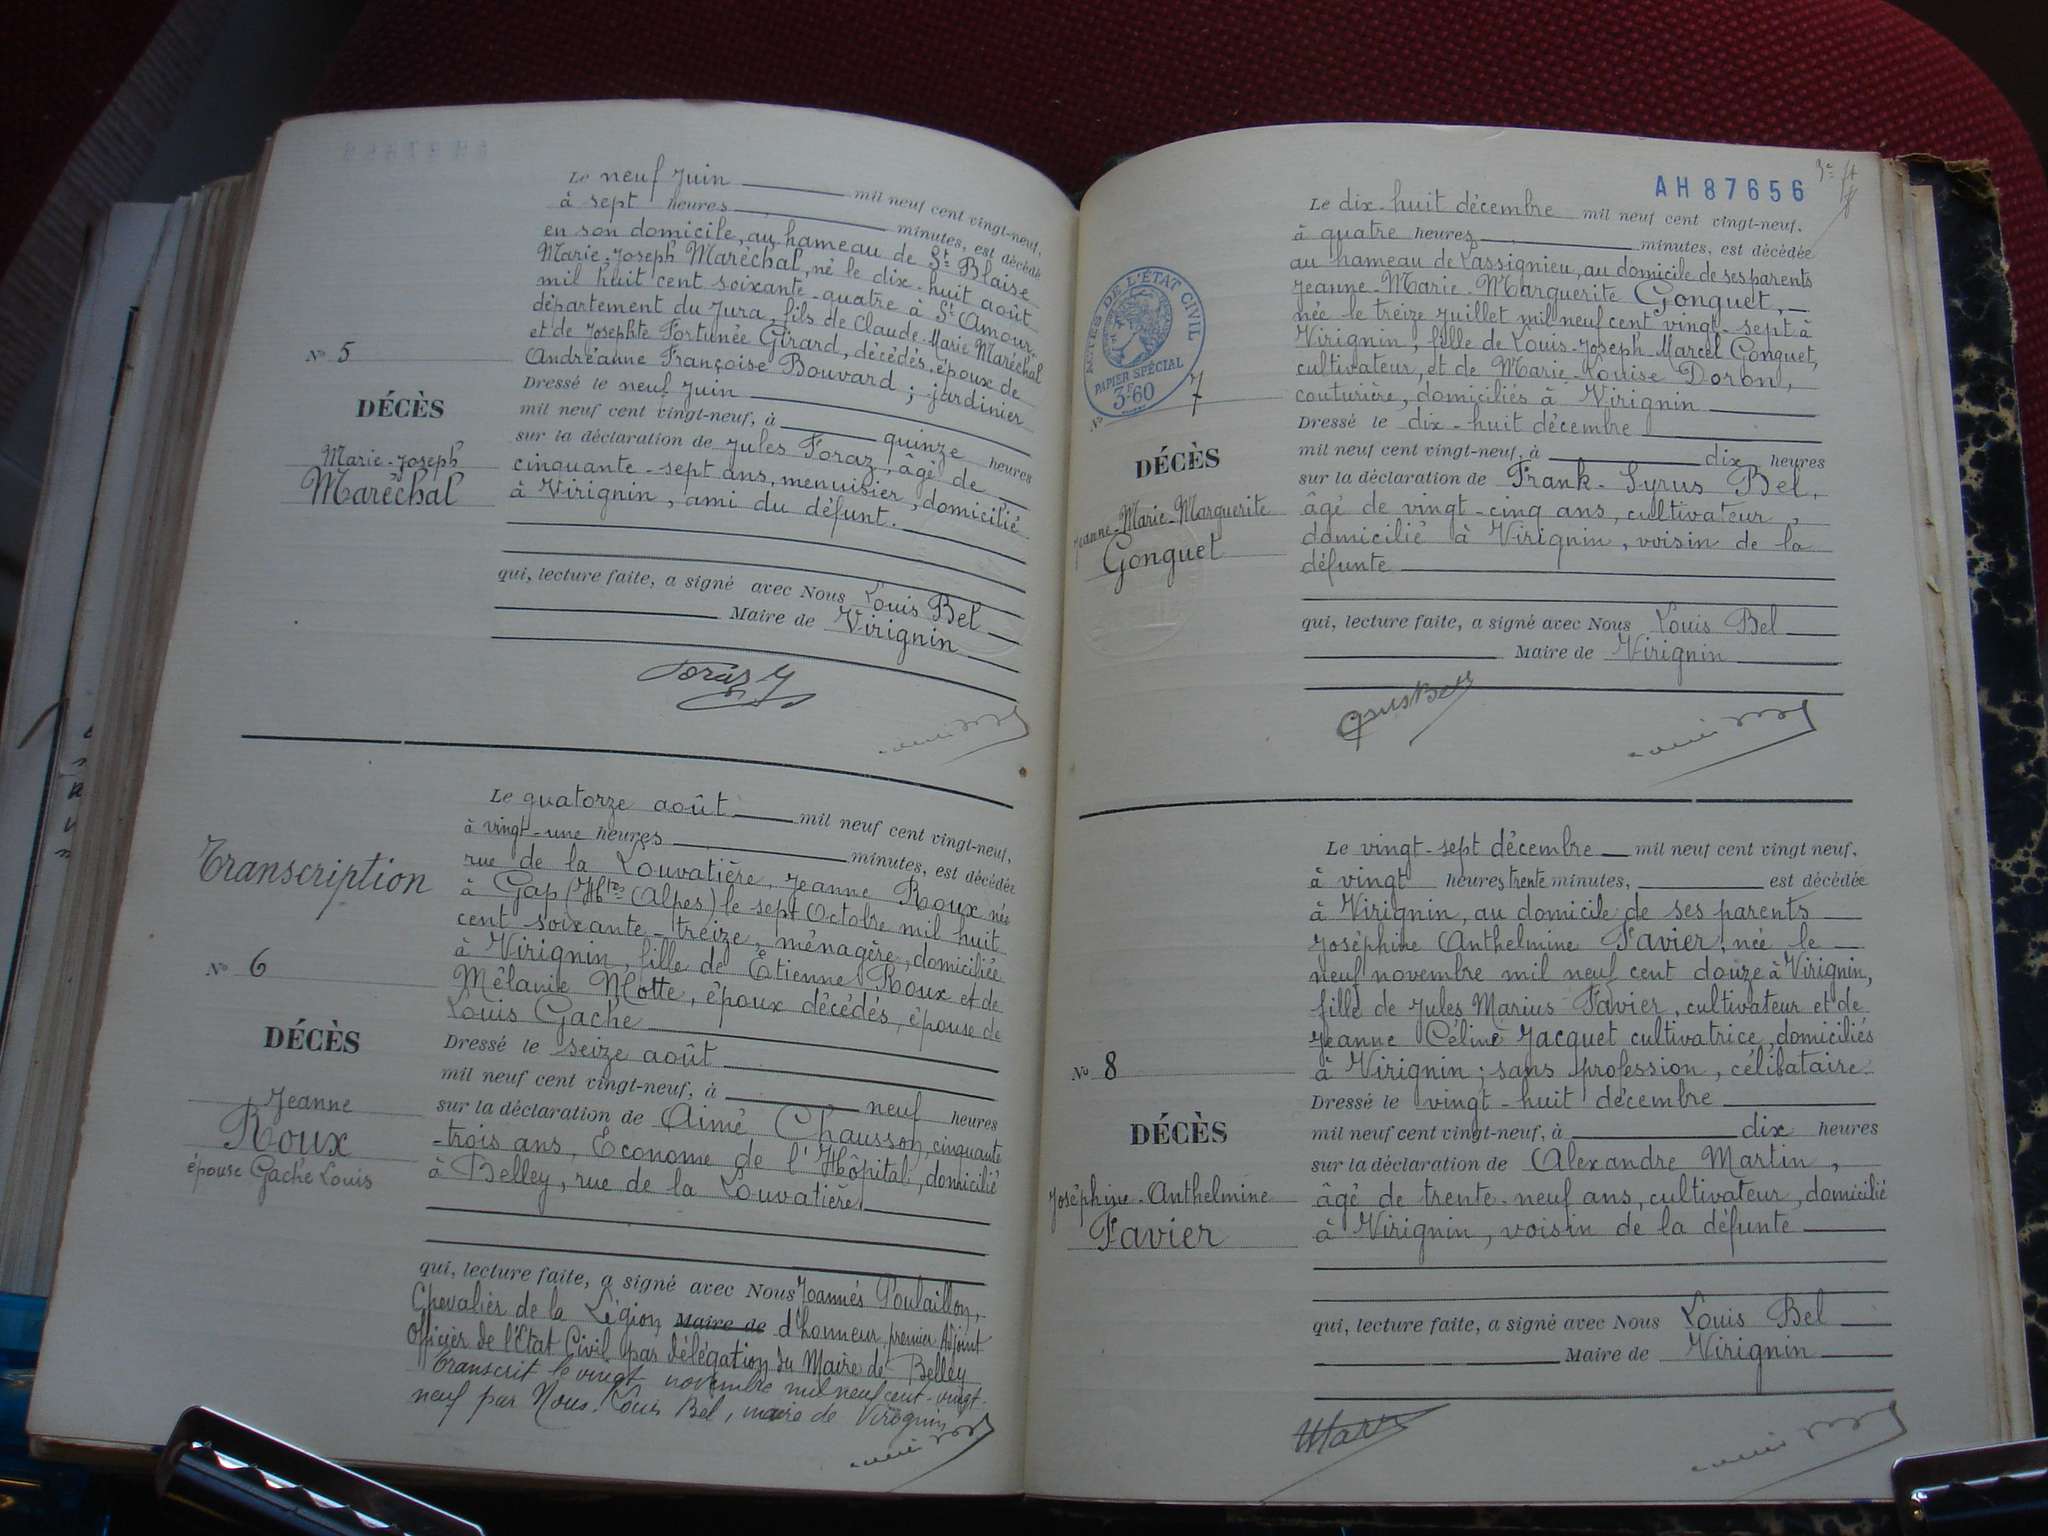 Le neuf Juin mil neuf cent vingt-neuf,
à sept heures minutes, est décédé
en son domicile, au hameau de St Blaise
Marie-Joseph Maréchal, né le dix-huit août
mil huit cent soixante-quatre à St Amour
département du Jura, fils de Claude-Marie Maréchal
et de Josephte Fortunée Girard, décédés, époux de
Andréanne Françoise Bouvard ; jardinier
Dressé le neuf Juin
mil neuf cent vingt-neuf, à quinze heures
sur la déclaration de Jules Foraz, âgé de
cinquante-sept ans, menuisier, domicilié
à Virignin, ami du défunt.
qui, lecture faite, a signé avec Nous Louis Bel
Maire de Virignin
No 5
DÉCÈS
Marie-Joseph
Maréchal
Foraz J
Transcription
No 6
DÉCÈS
Jeanne
Roux
épouse Gache Louis
Le quatorze août mil neuf cent vingt-neuf,
à vingt-une heures minutes, est décédée
rue de la Louvatière, Jeanne Roux née
à Gap (Htes Alpes) le sept Octobre mil huit
cent soixante-treize, ménagère, domiciliée
à Virignin, fille de Étienne Roux et de
Mélanie Motte, époux décédés, épouse de
Louis Gache
Dressé le seize août
mil neuf cent vingt-neuf, à neuf heures
sur la déclaration de Aimé Chausson, cinquante
-trois ans, Econome de l'Hôpital, domicilié
à Belley, rue de la Louvatière
qui, lecture faite, a signé avec Nous Joannés Poulaillon,
Chevalier de la Légion Maire de d'honneur, premier Adjoint
Officier de l'Etat Civil par délégation du Maire de Belley
Transcrit le vingt novembre mil neuf cent-vingt-
neuf par Nous, Louis Bel, maire de Virignin
AH 87656
ACTES DE L'ÉTAT CIVIL
PAPIER SPÉCIAL
3F60
No 7
DÉCÈS
Jeanne-Marie-Marguerite
Gonguet
Le dix-huit décembre mil neuf cent vingt-neuf,
à quatre heures minutes, est décédée
au hameau de Lassignieu, au domicile de ses parents
Jeanne-Marie-Marguerite Gonguet,
née le treize Juillet mil neuf cent vingt-sept à
Virignin, fille de Louis-Joseph-Marcel Gonguet,
cultivateur, et de Marie-Louise Doron,
couturière, domiciliés à Virignin
Dressé le dix-huit décembre
mil neuf cent vingt-neuf, à dix heures
sur la déclaration de Frank-Syrus Bel,
âgé de vingt-cinq ans, cultivateur,
domicilié à Virignin, voisin de la
défunte
qui, lecture faite, a signé avec Nous Louis Bel
Maire de Virignin
No 8
DÉCÈS
Joséphine-Anthelmine
Favier
Le vingt-sept décembre mil neuf cent vingt neuf,
à vingt heures trente minutes, est décédée
à Virignin, au domicile de ses parents
Joséphine Anthelmine Favier, née le
neuf novembre mil neuf cent douze à Virignin,
fille de Jules Marius Favier, cultivateur et de
Jeanne Céline Jacquet cultivatrice, domiciliés
à Virignin ; sans profession, célibataire
Dressé le vingt-huit décembre
mil neuf cent vingt-neuf, à dix heures
sur la déclaration de Alexandre Martin,
âgé de trente-neuf ans, cultivateur, domicilié
à Virignin, voisin de la défunte
qui, lecture faite, a signé avec Nous Louis Bel
Maire de Virignin